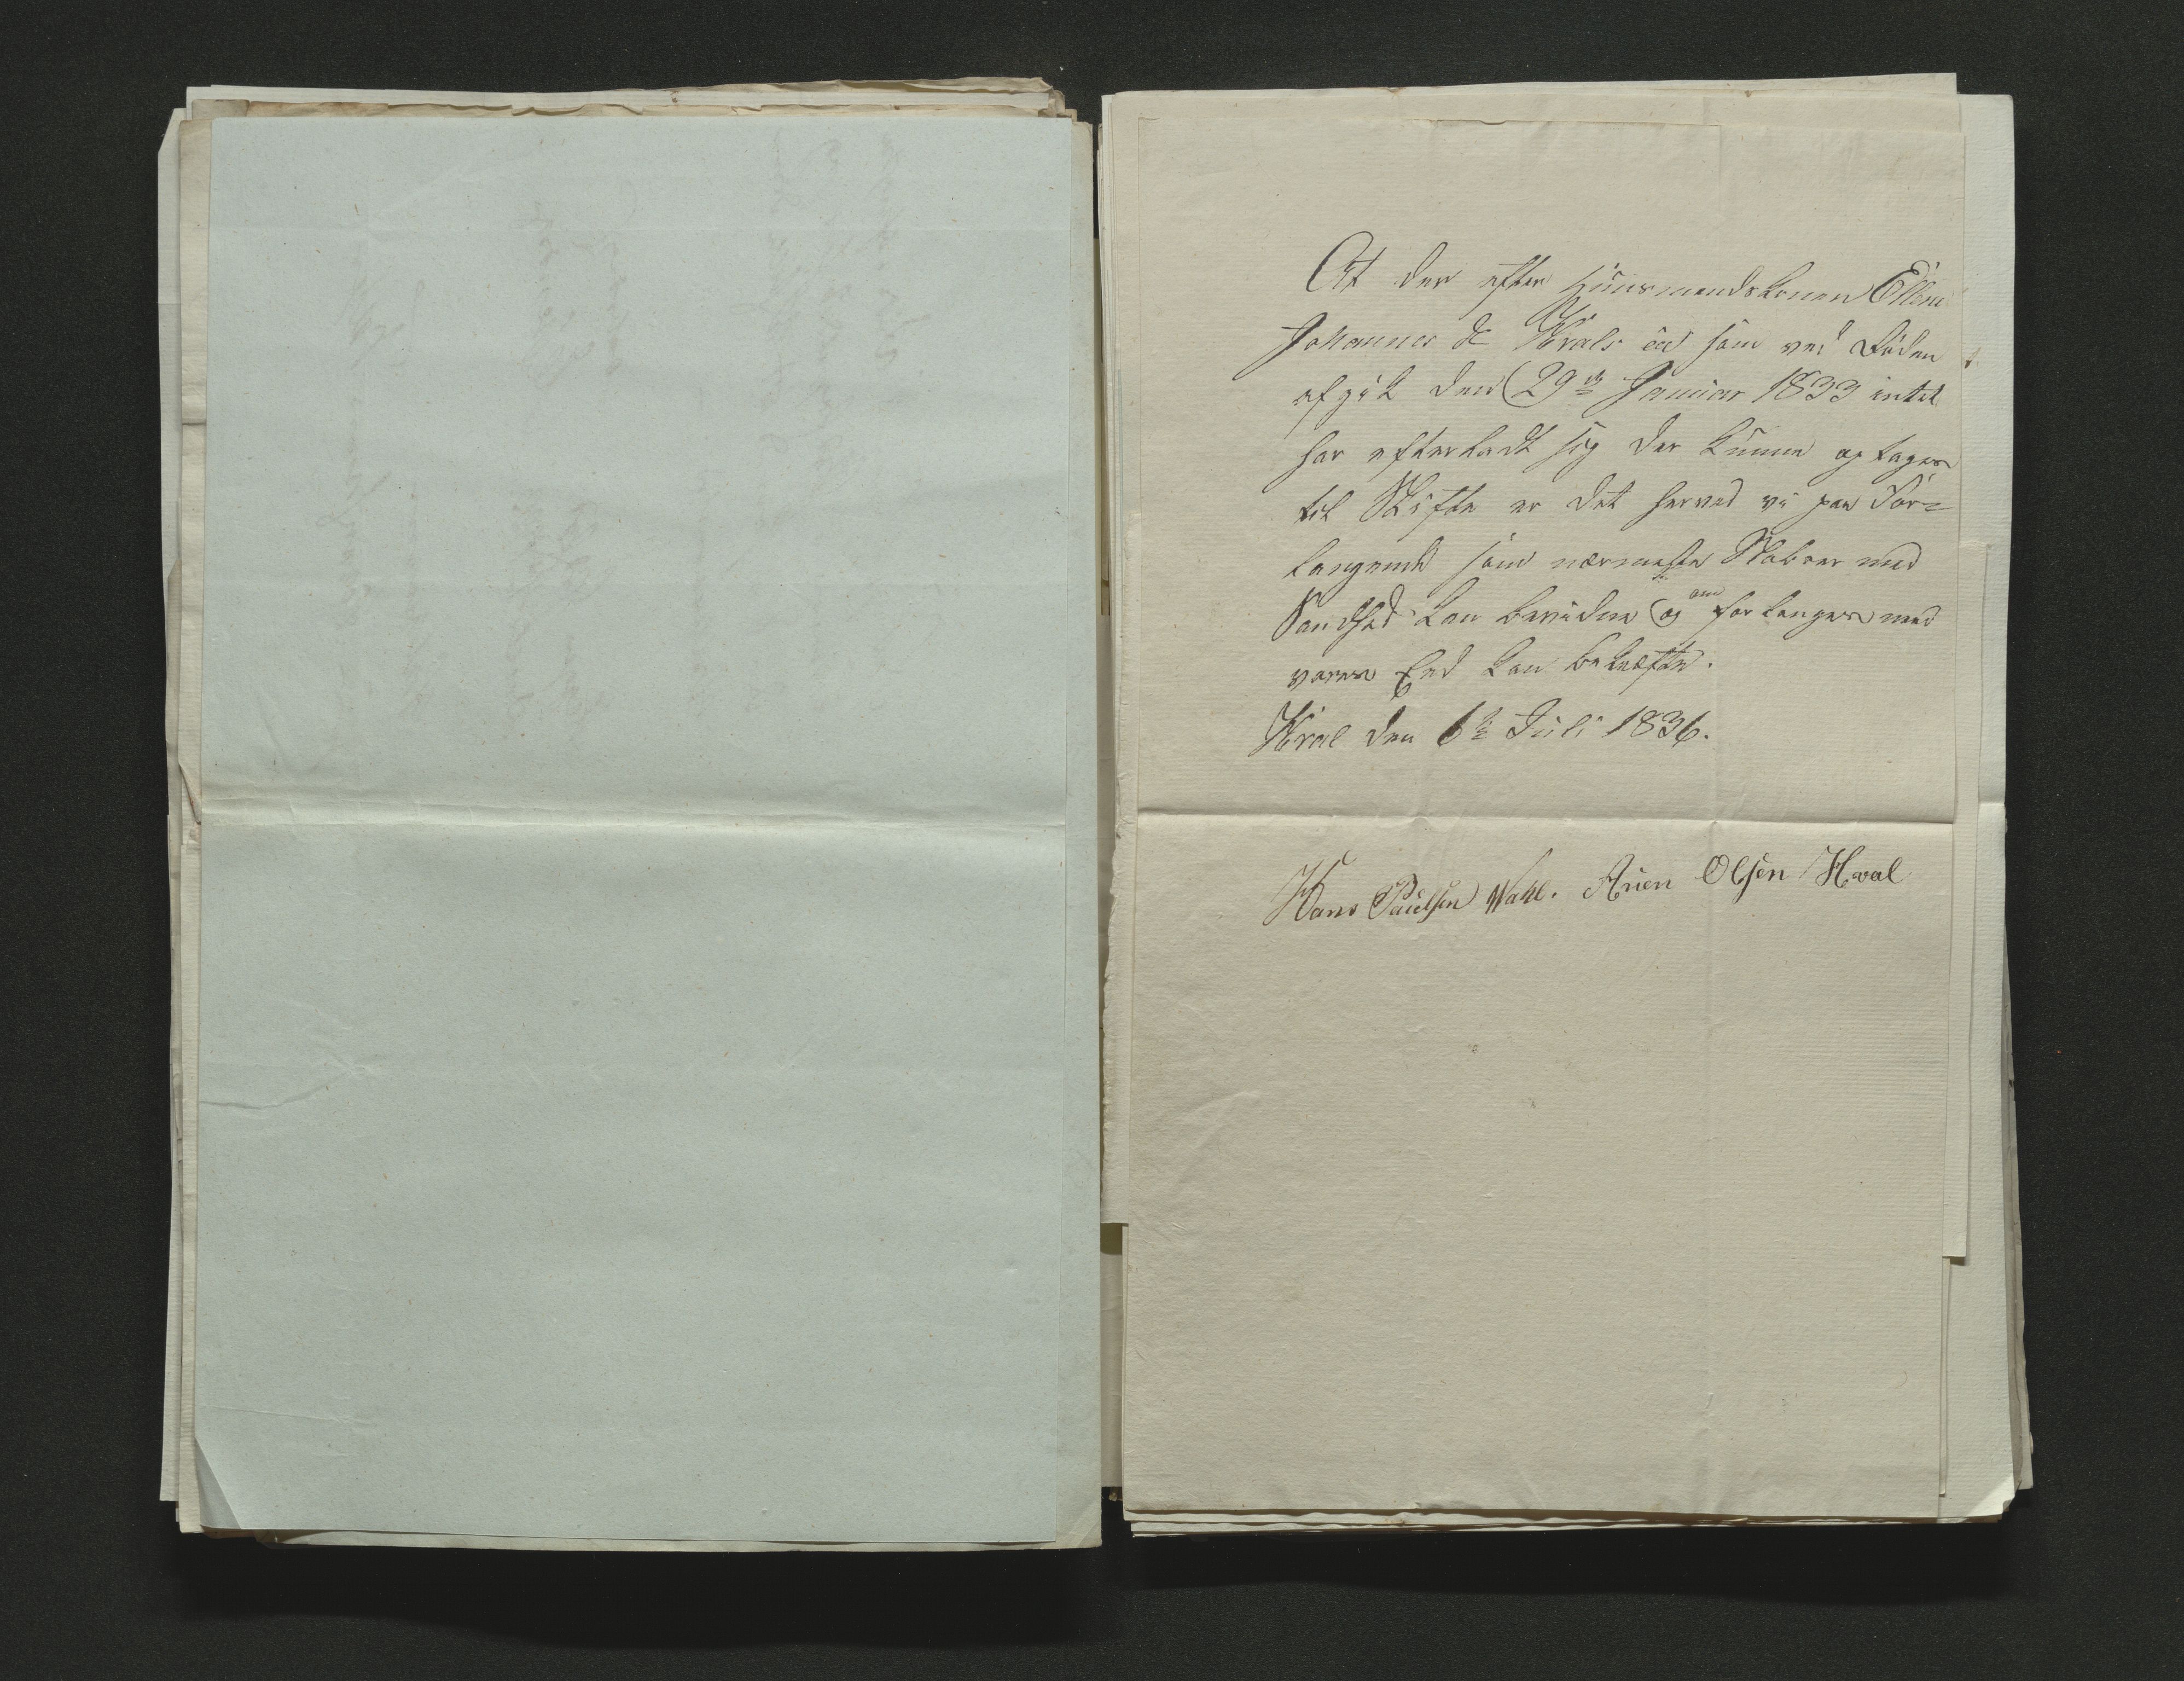 At der efter Huusmandskonen Ellene
Johannes D Hvals Eie som ved Døden
afgik den 29de Januar 1833 intet
har efterladt sig der kunne optages
til Skifte er det herved vi paa For-
langende som nærmeste Naboer med
Sandhed kan bevidne og om forlanges med
vores Eed kan bekræfte.
Hval den 6te Juli 1836.
Hans Paulsen Wahl. Aren Olsen Hval